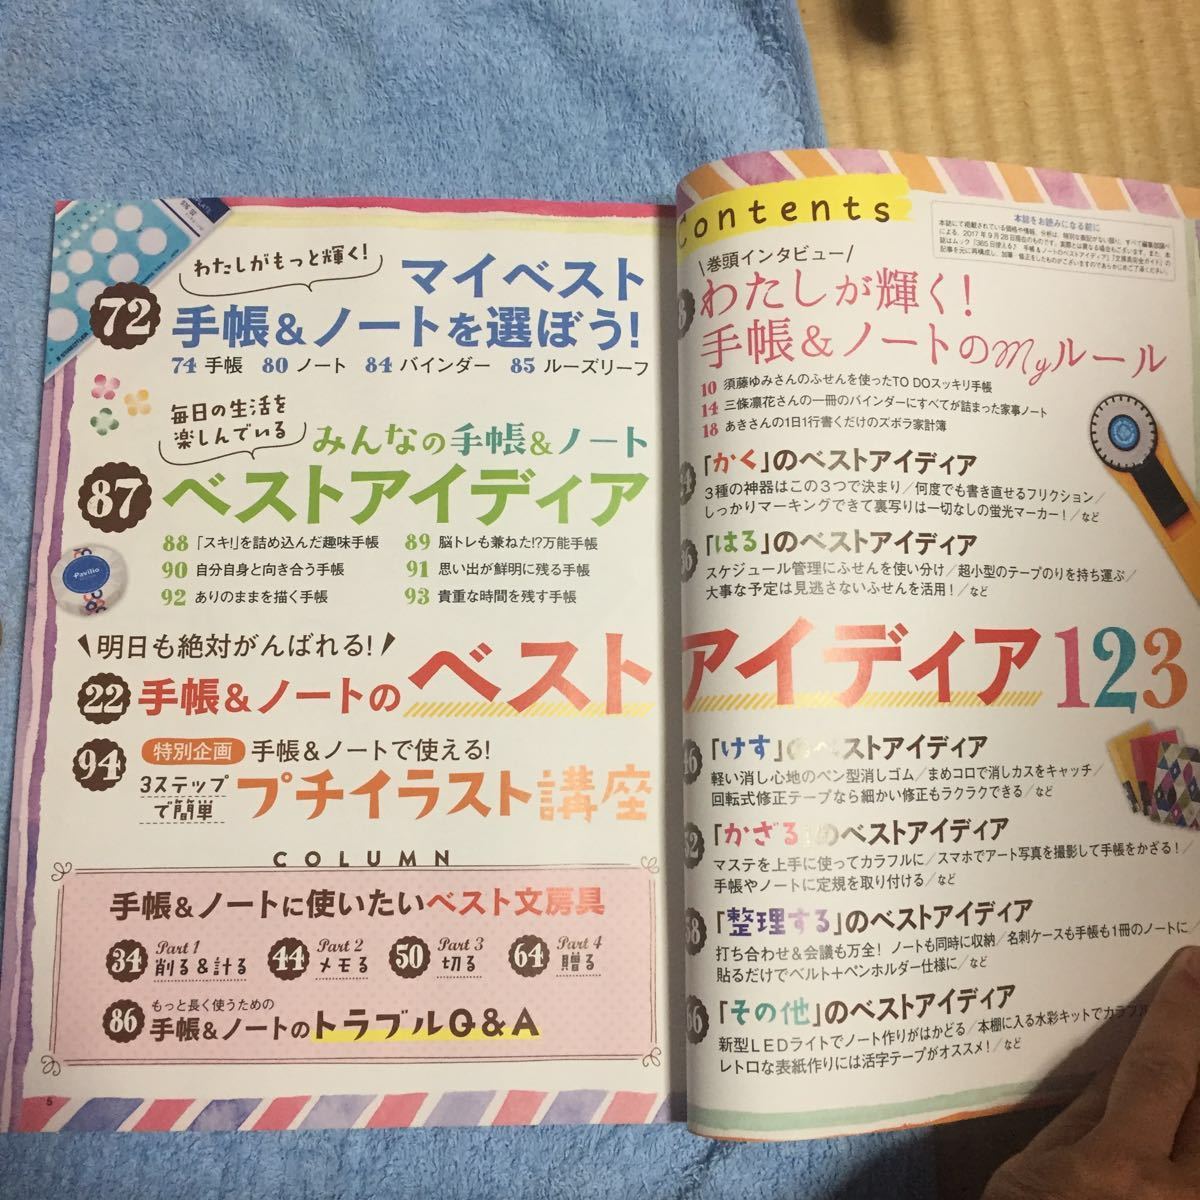 わたしがもっと輝く!
72
マイベスト
手帳&ノートを選ぼう!
74 手帳 80 ノート 84 バインダー 85 ルーズリーフ
毎日の生活を
楽しんでいる
みんなの手帳&ノート
87
ベストアイディア
88 「スキ!」を詰め込んだ趣味手帳
89 脳トレも兼ねた!?万能手帳
90 自分自身と向き合う手帳
91 思い出が鮮明に残る手帳
92 ありのままを描く手帳
93 貴重な時間を残す手帳
Pavilio
明日も絶対がんばれる!
22 手帳&ノートのベスト
94
特別企画 手帳&ノートで使える!
3ステップ
で簡単
プチイラスト講座
COLUMN
手帳&ノートに使いたいベスト文房具
34 Part 1 削る&計る
44 Part 2 メモる
50 Part 3 切る
64 Part 4 贈る
86
もっと長く使うための
手帳&ノートのトラブルQ&A
5
Contents
本誌をお読みになる前に
巻頭インタビュー
わたしが輝く!
手帳&ノートのMyルール
10 須藤ゆみさんのふせんを使ったTO DOスッキリ手帳
14 三條凛花さんの一冊のバインダーにすべてが詰まった家事ノート
18 あきさんの1日1行書くだけのズボラ家計簿
「かく」のベストアイディア
3種の神器はこの3つで決まり/何度でも書き直せるフリクション/
しっかりマーキングできて裏写りは一切なしの蛍光マーカー!/など
「はる」のベストアイディア
スケジュール管理にふせんを使い分け/超小型のテープのりを持ち運ぶ/
大事な予定は見逃さないふせんを活用!/など
アイディア123
「けす」のベストアイディア
軽い消し心地のペン型消しゴム/まめコロで消しカスをキャッチ/
回転式修正テープなら細かい修正もラクラクできる/など
「かざる」のベストアイディア
マステを上手に使ってカラフルに/スマホでアート写真を撮影して手帳をかざる!/
手帳やノートに定規を取り付ける/など
「整理する」のベストアイディア
打ち合わせ&会議も万全! ノートも同時に収納/名刺ケースも手帳も1冊のノートに/
貼るだけでベルト+ペンホルダー仕様に/など
「その他」のベストアイディア
新型LEDライトでノート作りがはかどる/本棚に入る水彩キットでカラフル
レトロな表紙作りには活字テープがオススメ!/など